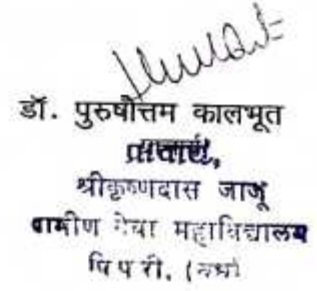 डॉ. पुरुषोत्तम कालभूत
प्राचार्य,
श्रीकृष्णदास जाजू
ग्रामीण सेवा महाविद्यालय
पिपरी. (वर्धा)